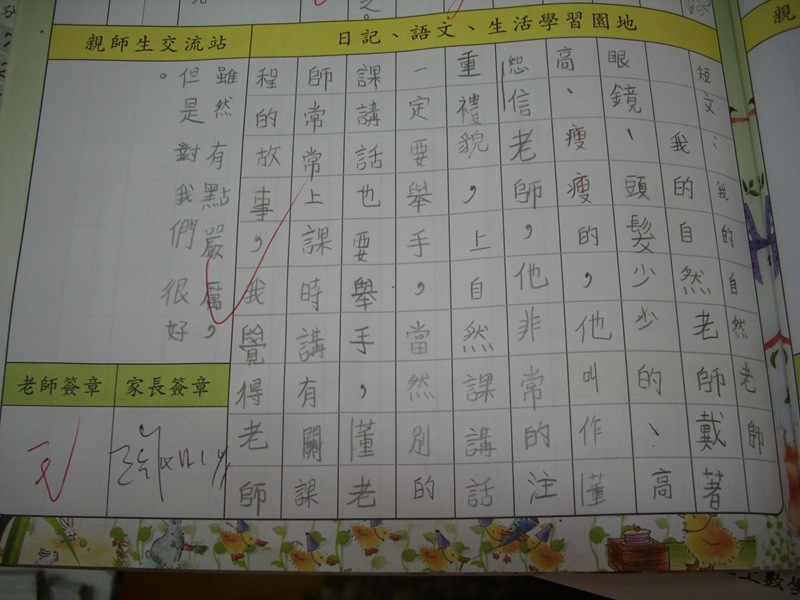 日記、語文、生活學習園地
短文：我的自然老師
我的自然老師戴著
眼鏡、頭髮少少的、高
高、瘦瘦的，他叫作董
恕信老師，他非常的注
重禮貌，上自然課講話
一定要舉手，當然別的
課講話也要舉手，董老
師常常上課時講有關課
程的故事，我覺得老師
親師生交流站
雖然有點嚴厲，
但是對我們很好
。
老師簽章
家長簽章
上數學